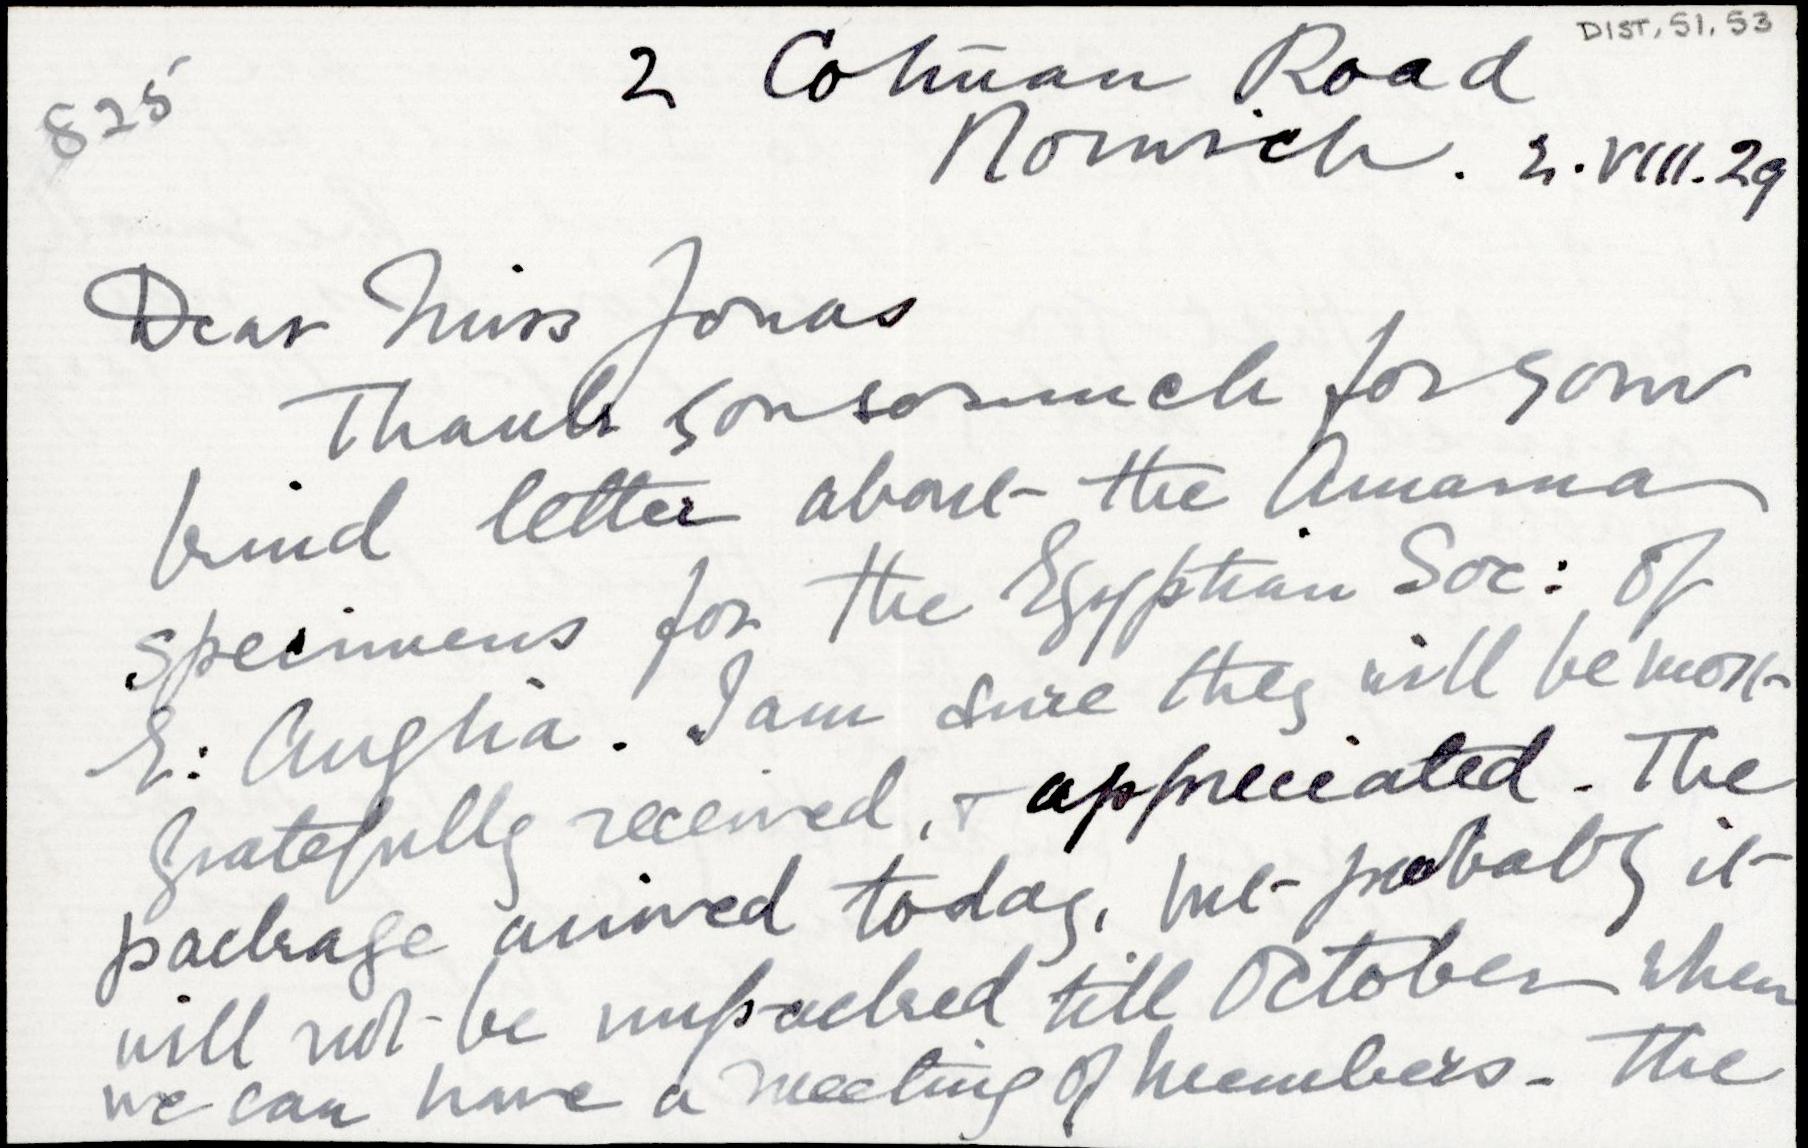 DIST. 51. 53
825
2 Colman Road
Norwich. 2.VIII.29
Dear Miss Jonas
Thank you so much for your
kind letter about the Amarna
specimens for the Egyptian Soc: of
E: Anglia. I am sure they will be most
gratefully received, & appreciated. The
package arrived today, but probably it
will not be unpacked till October when
we can have a meeting of Members. The